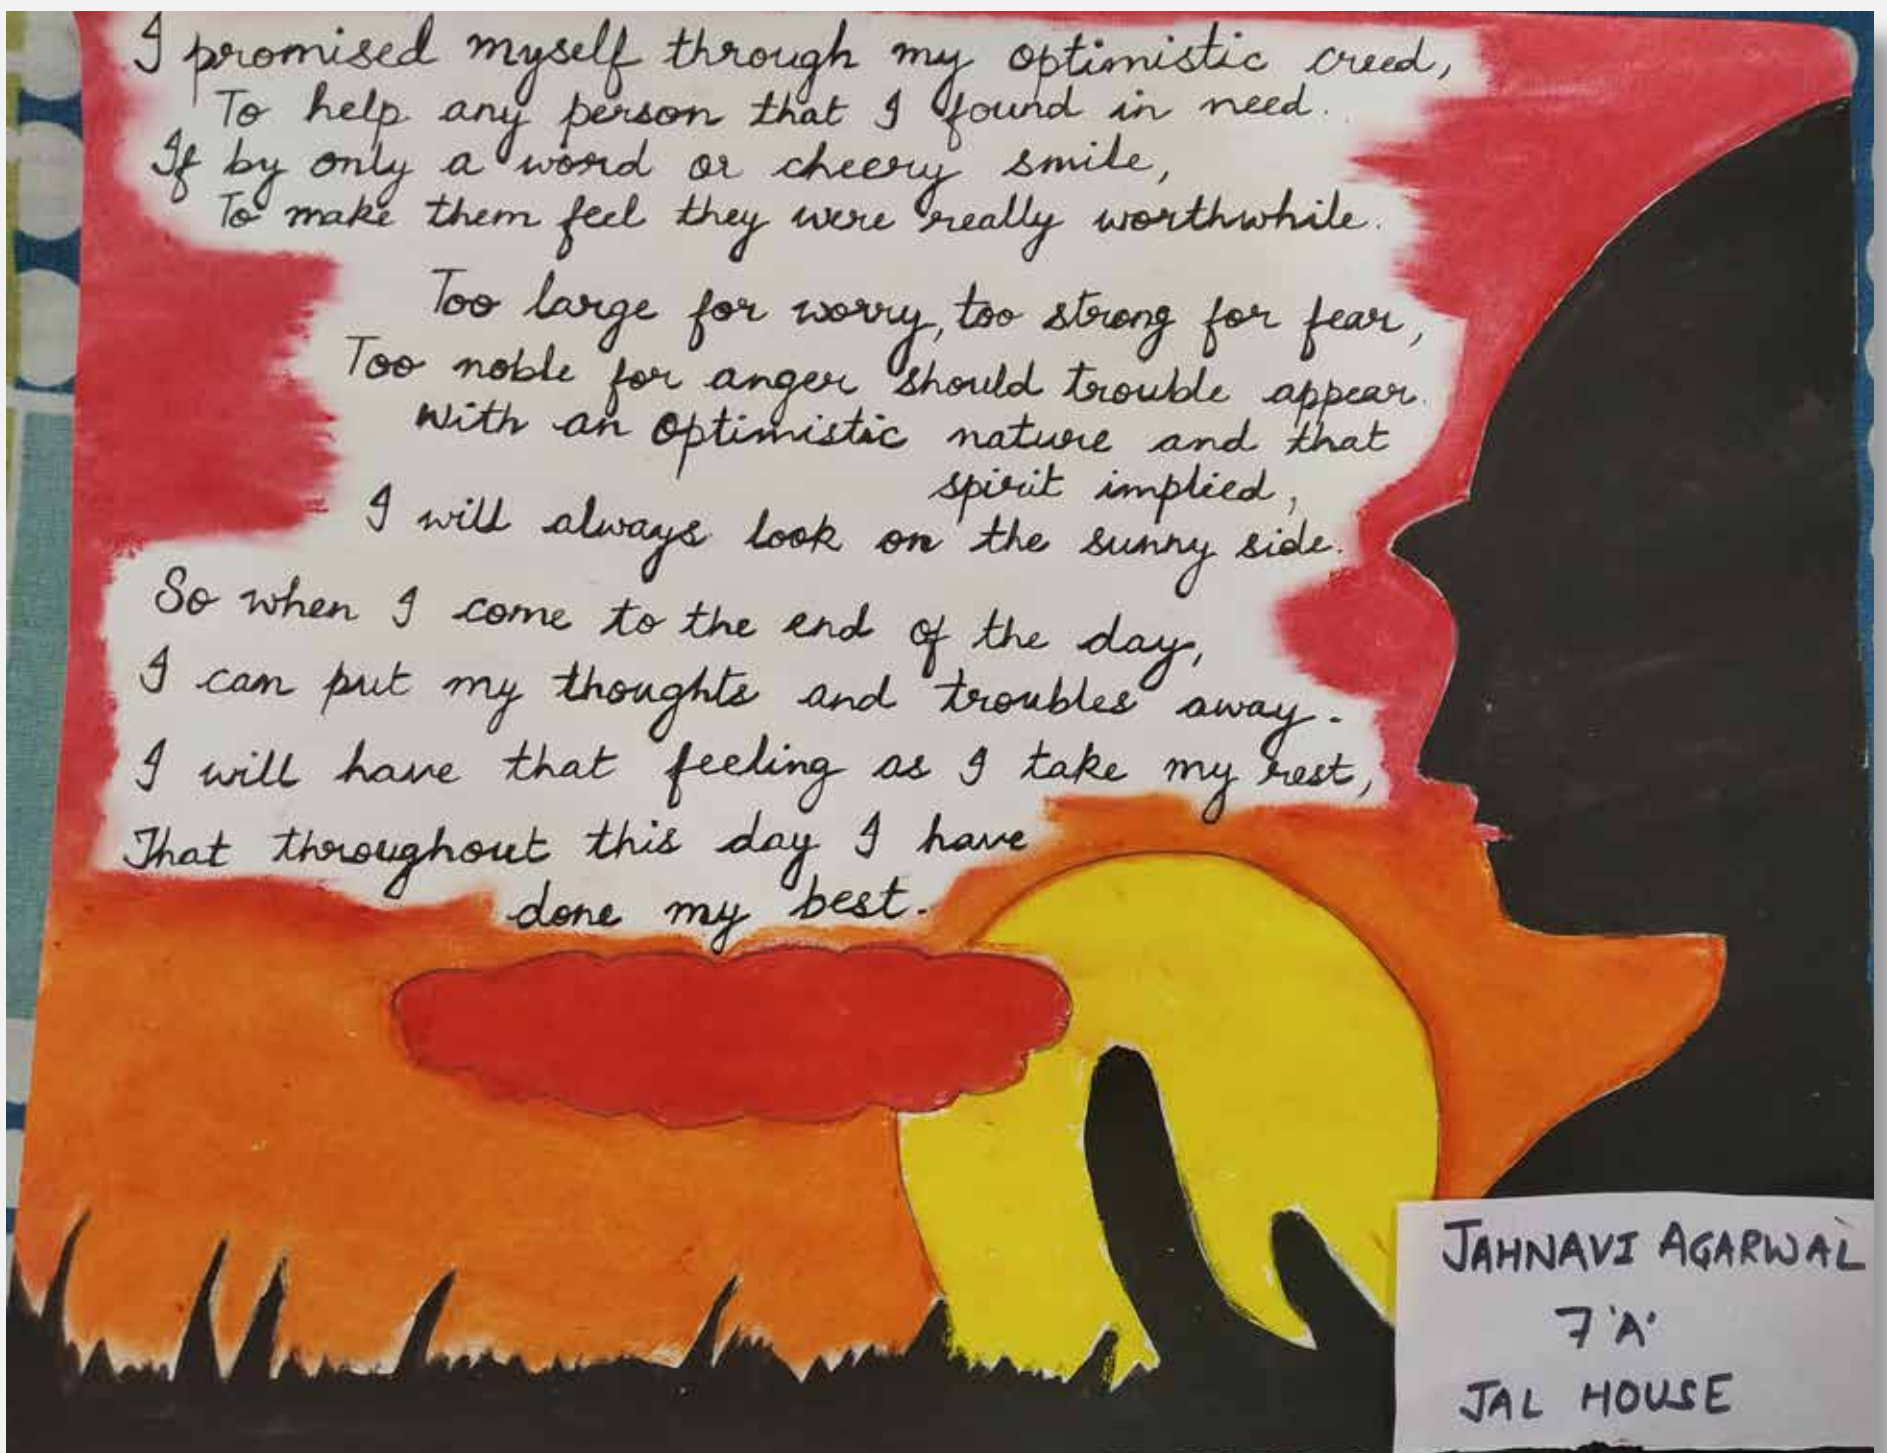 I promised myself through my optimistic creed,
To help any person that I found in need.
If by only a word or cheery smile,
To make them feel they were really worthwhile.
Too large for worry, too strong for fear,
Too noble for anger should trouble appear.
With an optimistic nature and that
spirit implied,
I will always look on the sunny side.
So when I come to the end of the day,
I can put my thoughts and troubles away.
I will have that feeling as I take my rest,
That throughout this day I have
done my best.
JAHNAVI AGARWAL
7 'A'
JAL HOUSE